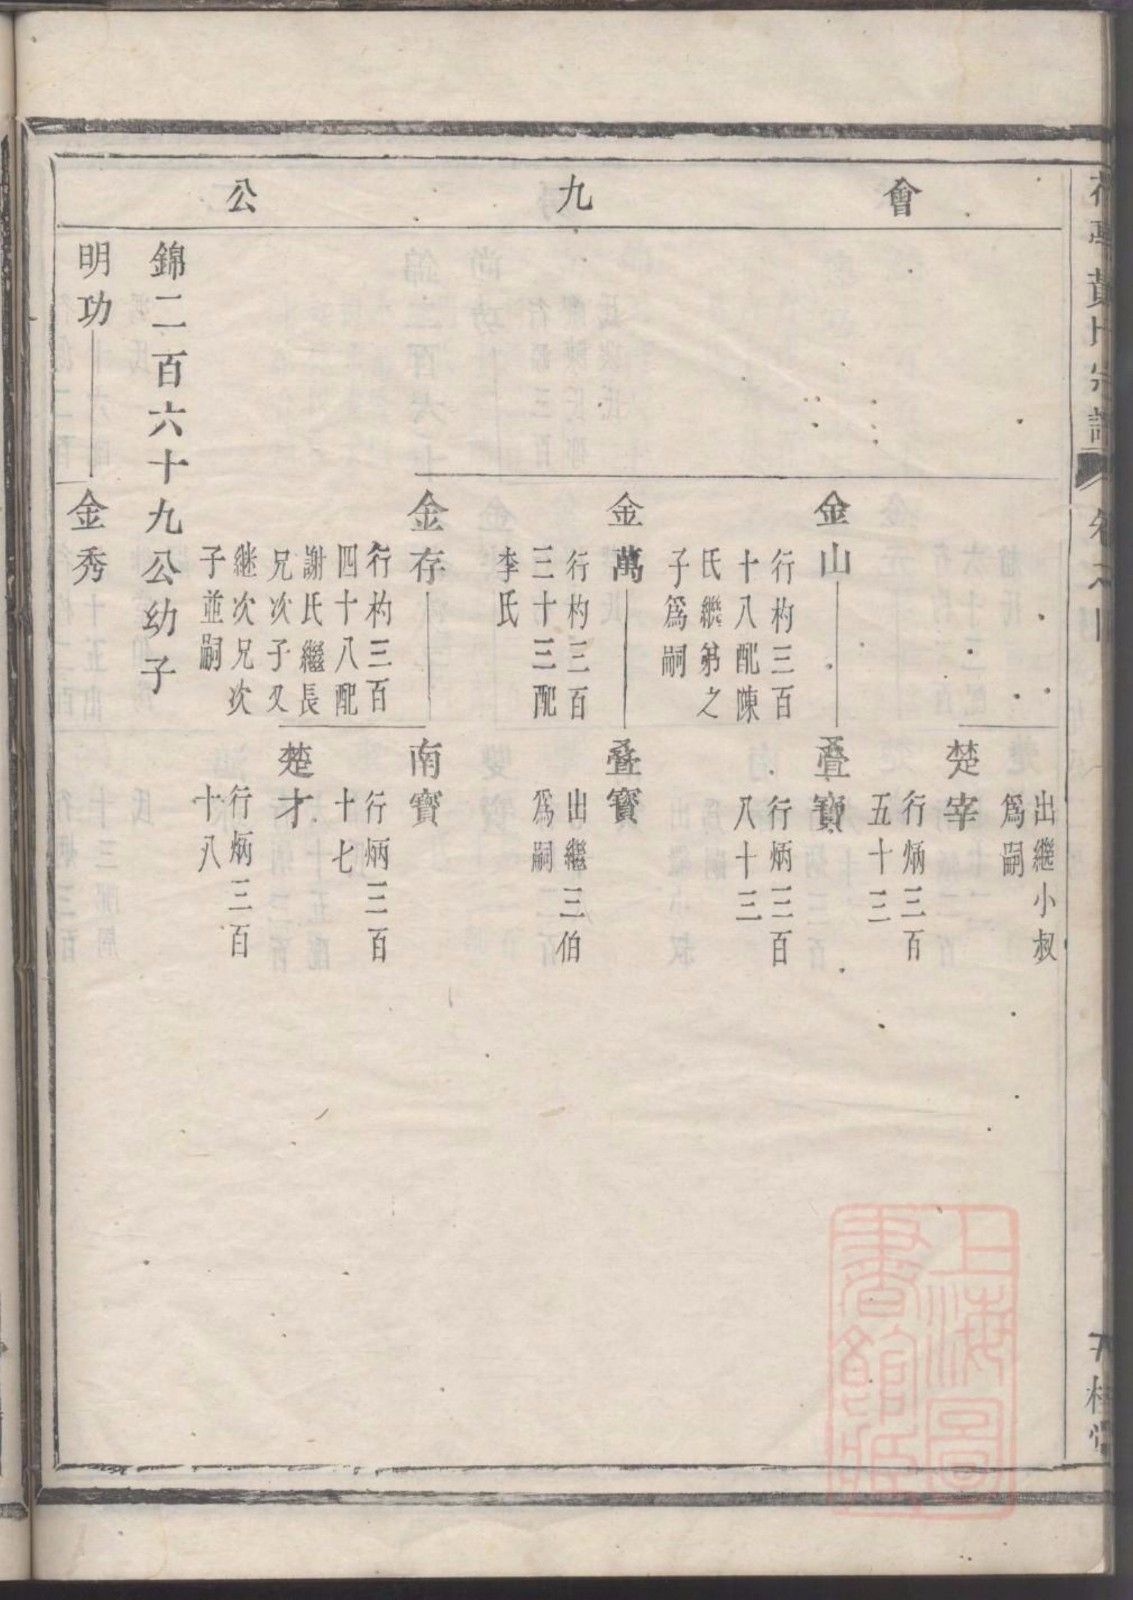 會九公
出繼小叔
爲嗣
楚宰
行炳三百
五十三
金山
行杓三百
十八配陳
氏繼弟之
子爲嗣
疊寶
行炳三百
八十三
金萬
行杓三百
三十三配
李氏
疊寶
出繼三伯
爲嗣
金存
行杓三百
四十八配
謝氏繼長
兄次子又
継次兄次
子並嗣
南寶
行炳三百
十七
楚才
行炳三百
十八
錦二百六十九公幼子
明功
金秀
黃氏宗譜
桂堂
上海圖
書館藏